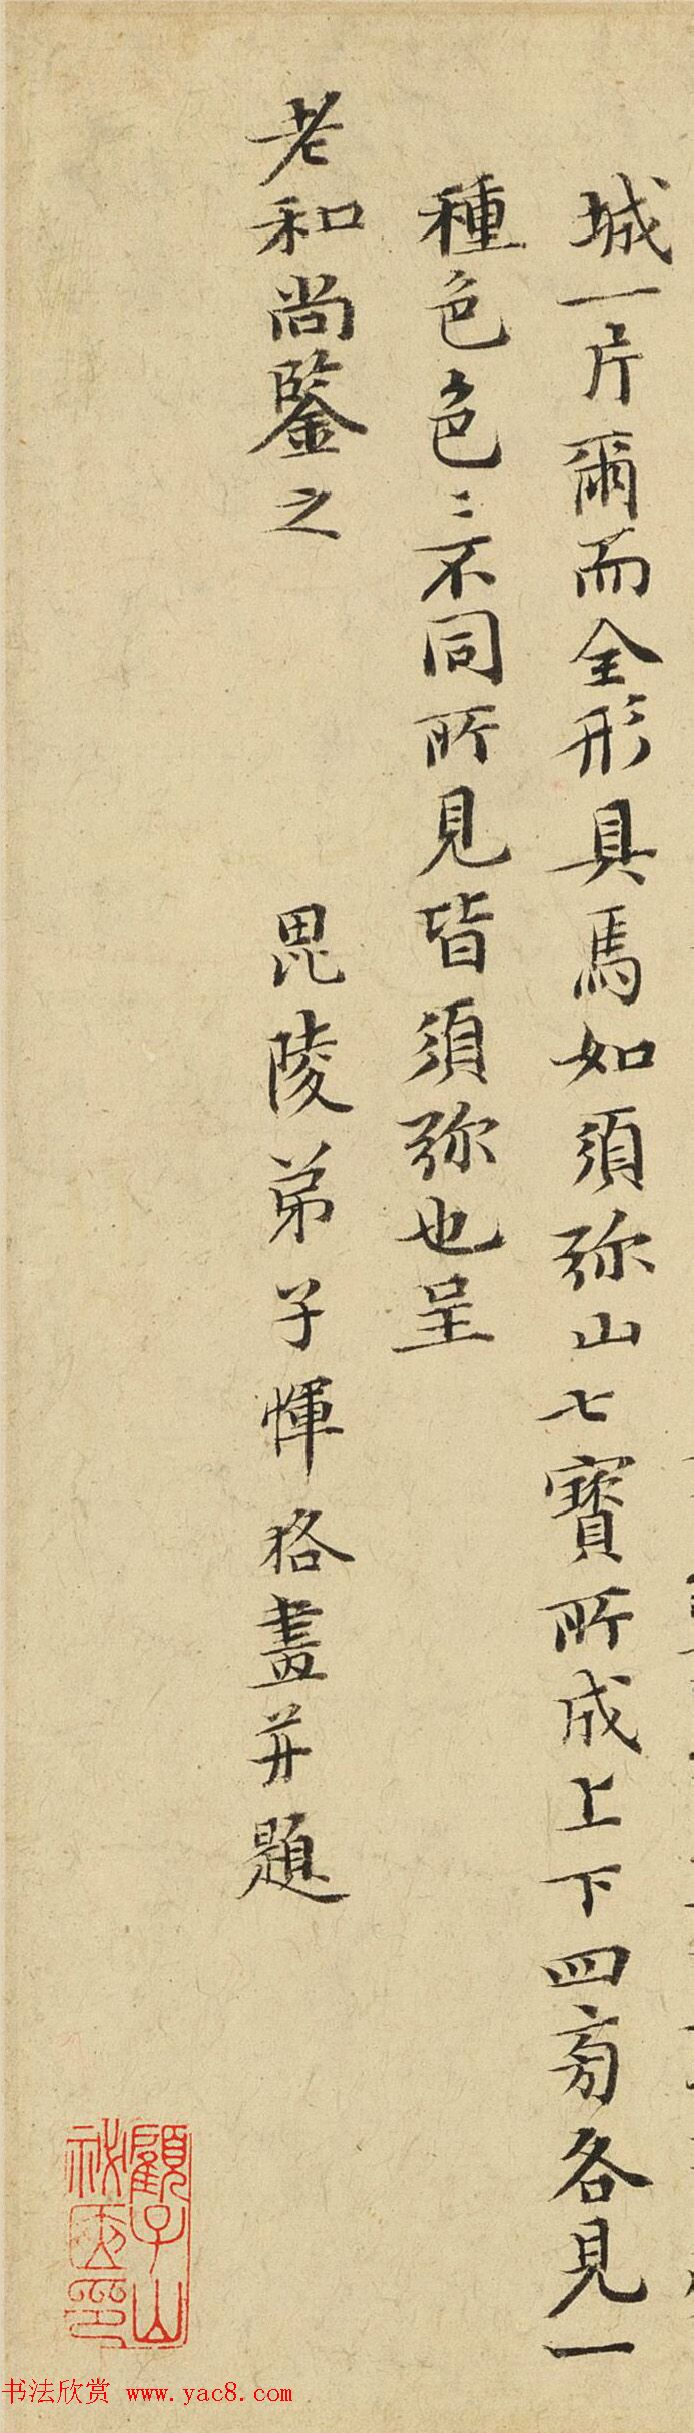 城一片爾而全形具焉如須弥山七寶所成上下四旁各見一
種色色〻不同所見皆須弥也呈
老和尚鑒之
毘陵弟子惲格畫并題
顧子山
秘匧印
书法欣赏 www.yac8.com